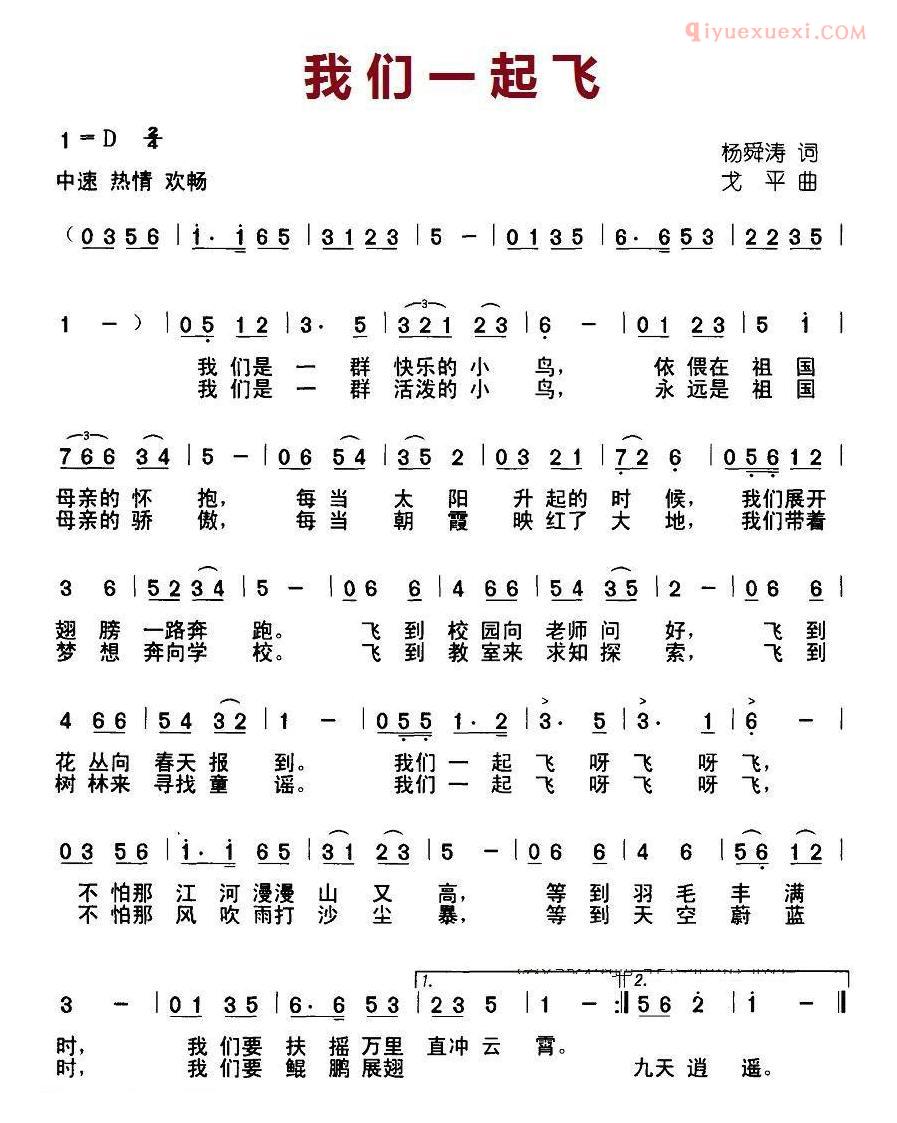 qiyuexuexi.COM
我们一起飞
1=D 2/4
杨舜涛 词
中速 热情 欢畅
戈 平 曲
（0356 | i· i165 | 3123 | 5 - | 0135 | 6· 653 | 2235 |
1 - ）| 05 12 | 3· 5 | 321 23 | 6 - | 01 23 | 5 i |
我 们是 一 群 快乐的 小 鸟， 依 偎在 祖 国
我 们是 一 群 活泼的 小 鸟， 永 远是 祖 国
766 34 | 5 - | 06 54 | 35 2 | 03 21 | 72 6 | 05612 |
母亲的 怀 抱， 每 当 太 阳 升 起的 时 候， 我们展开
母亲的 骄 傲， 每 当 朝 霞 映 红了 大 地， 我们带着
3 6 | 5234 | 5 - | 06 6 | 4 66 | 54 35 | 2 - | 06 6 |
翅 膀 一路奔 跑。 飞 到 校 园向 老师 问 好， 飞 到
梦 想 奔向学 校。 飞 到 教 室来 求知 探 索， 飞 到
4 66 | 54 32 | 1 - | 055 1·2 | 3· 5 | 3· 1 | 6 - |
花 丛向 春天 报 到。 我们 一 起 飞 呀 飞 呀 飞，
树 林来 寻找 童 谣。 我们 一 起 飞 呀 飞 呀 飞，
03 56 | i· i 65 | 31 23 | 5 - | 06 6 | 4 6 | 56 12 |
不 怕那 江 河 漫漫 山 又 高， 等 到 羽 毛 丰 满
不 怕那 风 吹 雨打 沙 尘 暴， 等 到 天 空 蔚 蓝
1. 2.
3 - | 01 35 | 6· 6 53 | 235 | 1 - :| 56 2 | i - ‖
时， 我 们要 扶 摇 万里 直冲 云 霄。
时， 我 们要 鲲 鹏 展翅 九天 逍 遥。